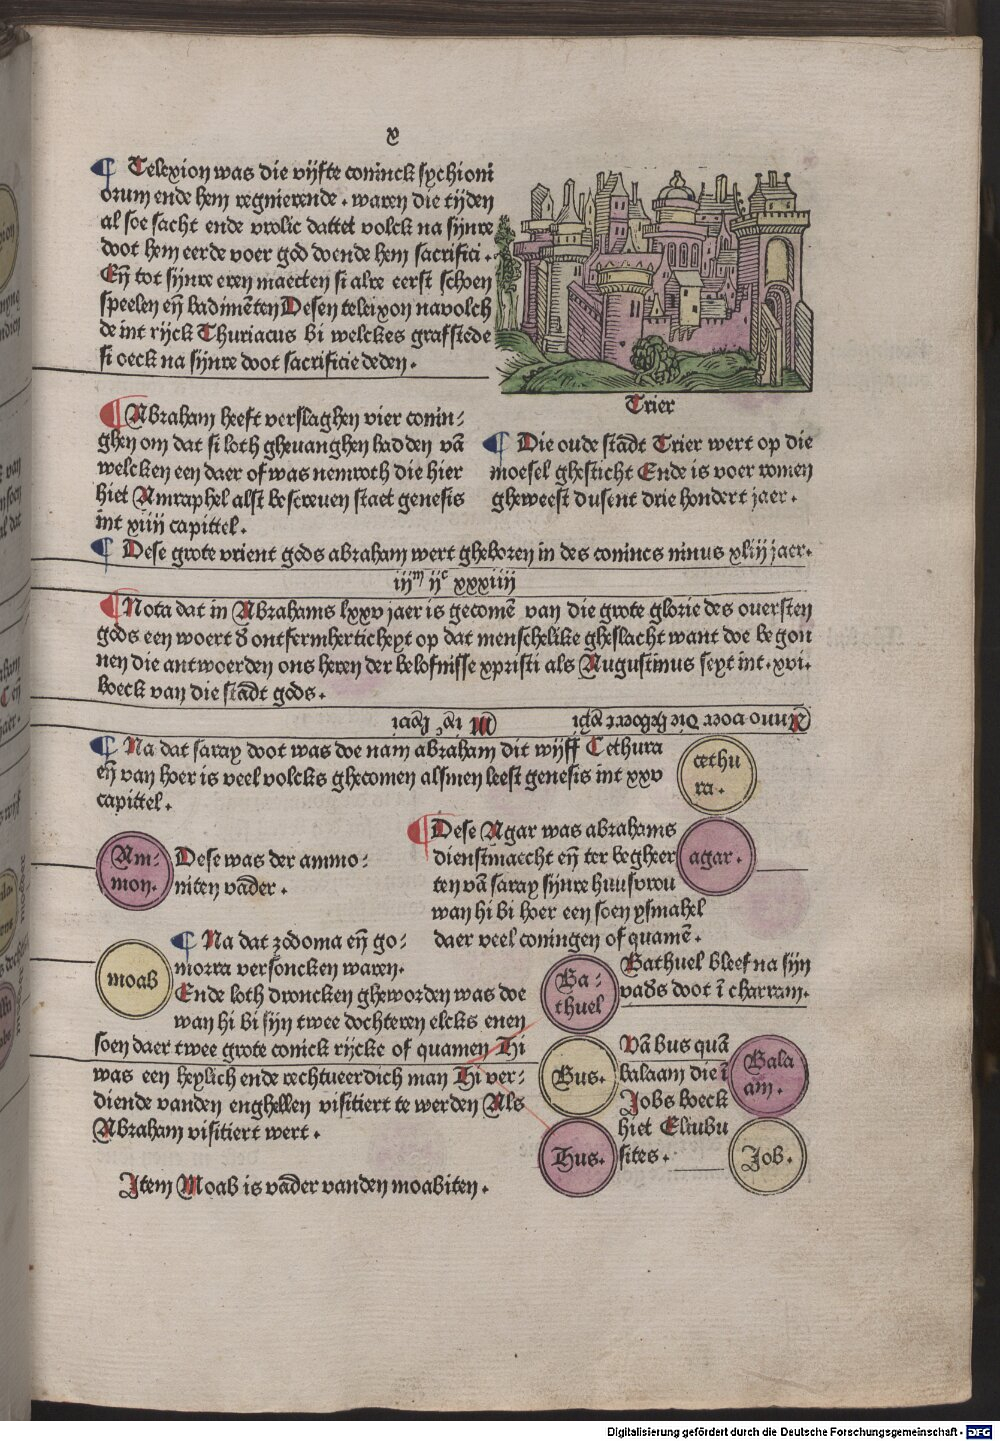 x
¶ Telexion was die vijfte coninck sychioni
orum ende hem regnierende . waren die tijden
al soe sacht ende vrolic dattet volck na sijnre
doot hem eerde voer god doende hem sacrifici .
Eñ tot sijnre eren maecten si alre eerst schoen
speelen eñ badimēten Desen teleixon navolch
de int rijck Thuriacus bi welckes grafstede
si oeck na sijnre doot sacrificie deden .
Trier
¶ Abraham heeft verslaghen vier conin⸗
ghen om dat si loth ghevanghen hadden vā
welcken een daer of was nemroth die hier
hiet Amraphel alst bescreven staet genesis
int xiiij capittel .
¶ Die oude stādt Trier wert op die
moesel ghesticht Ende is voer romen
gheweest dusent drie hondert jaer .
¶ Dese grote vrient gods abraham wert gheboren in des conincs ninus xliij jaer .
iijᵐ ijᶜ xxxiiij
¶ Nota dat in Abrahams lxxv jaer is gecomē van die grote glorie des oversten
gods een woert ð ontfermherticheyt op dat menschelike gheslacht want doe begon
nen die antwoerden ons heren der belofnisse xpristi als Augustinus seyt int . xvi .
boeck van die stādt gods .
Anno voer die geboert xp̄i
M ixᶜ lxvi
¶ Na dat saray doot was doe nam abraham dit wijff Cethura
eñ van hoer is veel volcks ghecomen alsmen leest genesis int xxv
capittel .
cethu
ra .
Am⸗
mon .
Dese was der ammo⸗
niten vāder .
¶ Dese Agar was abrahams
dienstmaecht eñ ter begheer
ten vā saray sijnre huusvrou
wan hi bi hoer een soen ysmahel
daer veel coningen of quamē .
agar .
moab
¶ Na dat zodoma eñ go⸗
morra versoncken waren .
Ende loth droncken gheworden was doe
wan hi bi sijn twee dochteren elcks enen
soen daer twee grote conick rijcke of quamen Hi
was een heylich ende rechtveerdich man Hi ver⸗
diende vanden enghellen visitiert te werden Als
Abraham visitiert wert .
Item Moab is vāder vanden moabiten .
Ba⸗
thuel
Bathuel bleef na sijn
vaðs doot ī charram .
Bus .
Hus .
Vā bus quā
balaam die ī
Jobs boeck
hiet Eliubu
sites .
Bala
am̄ .
Job .
Digitalisierung gefördert durch die Deutsche Forschungsgemeinschaft - DFG